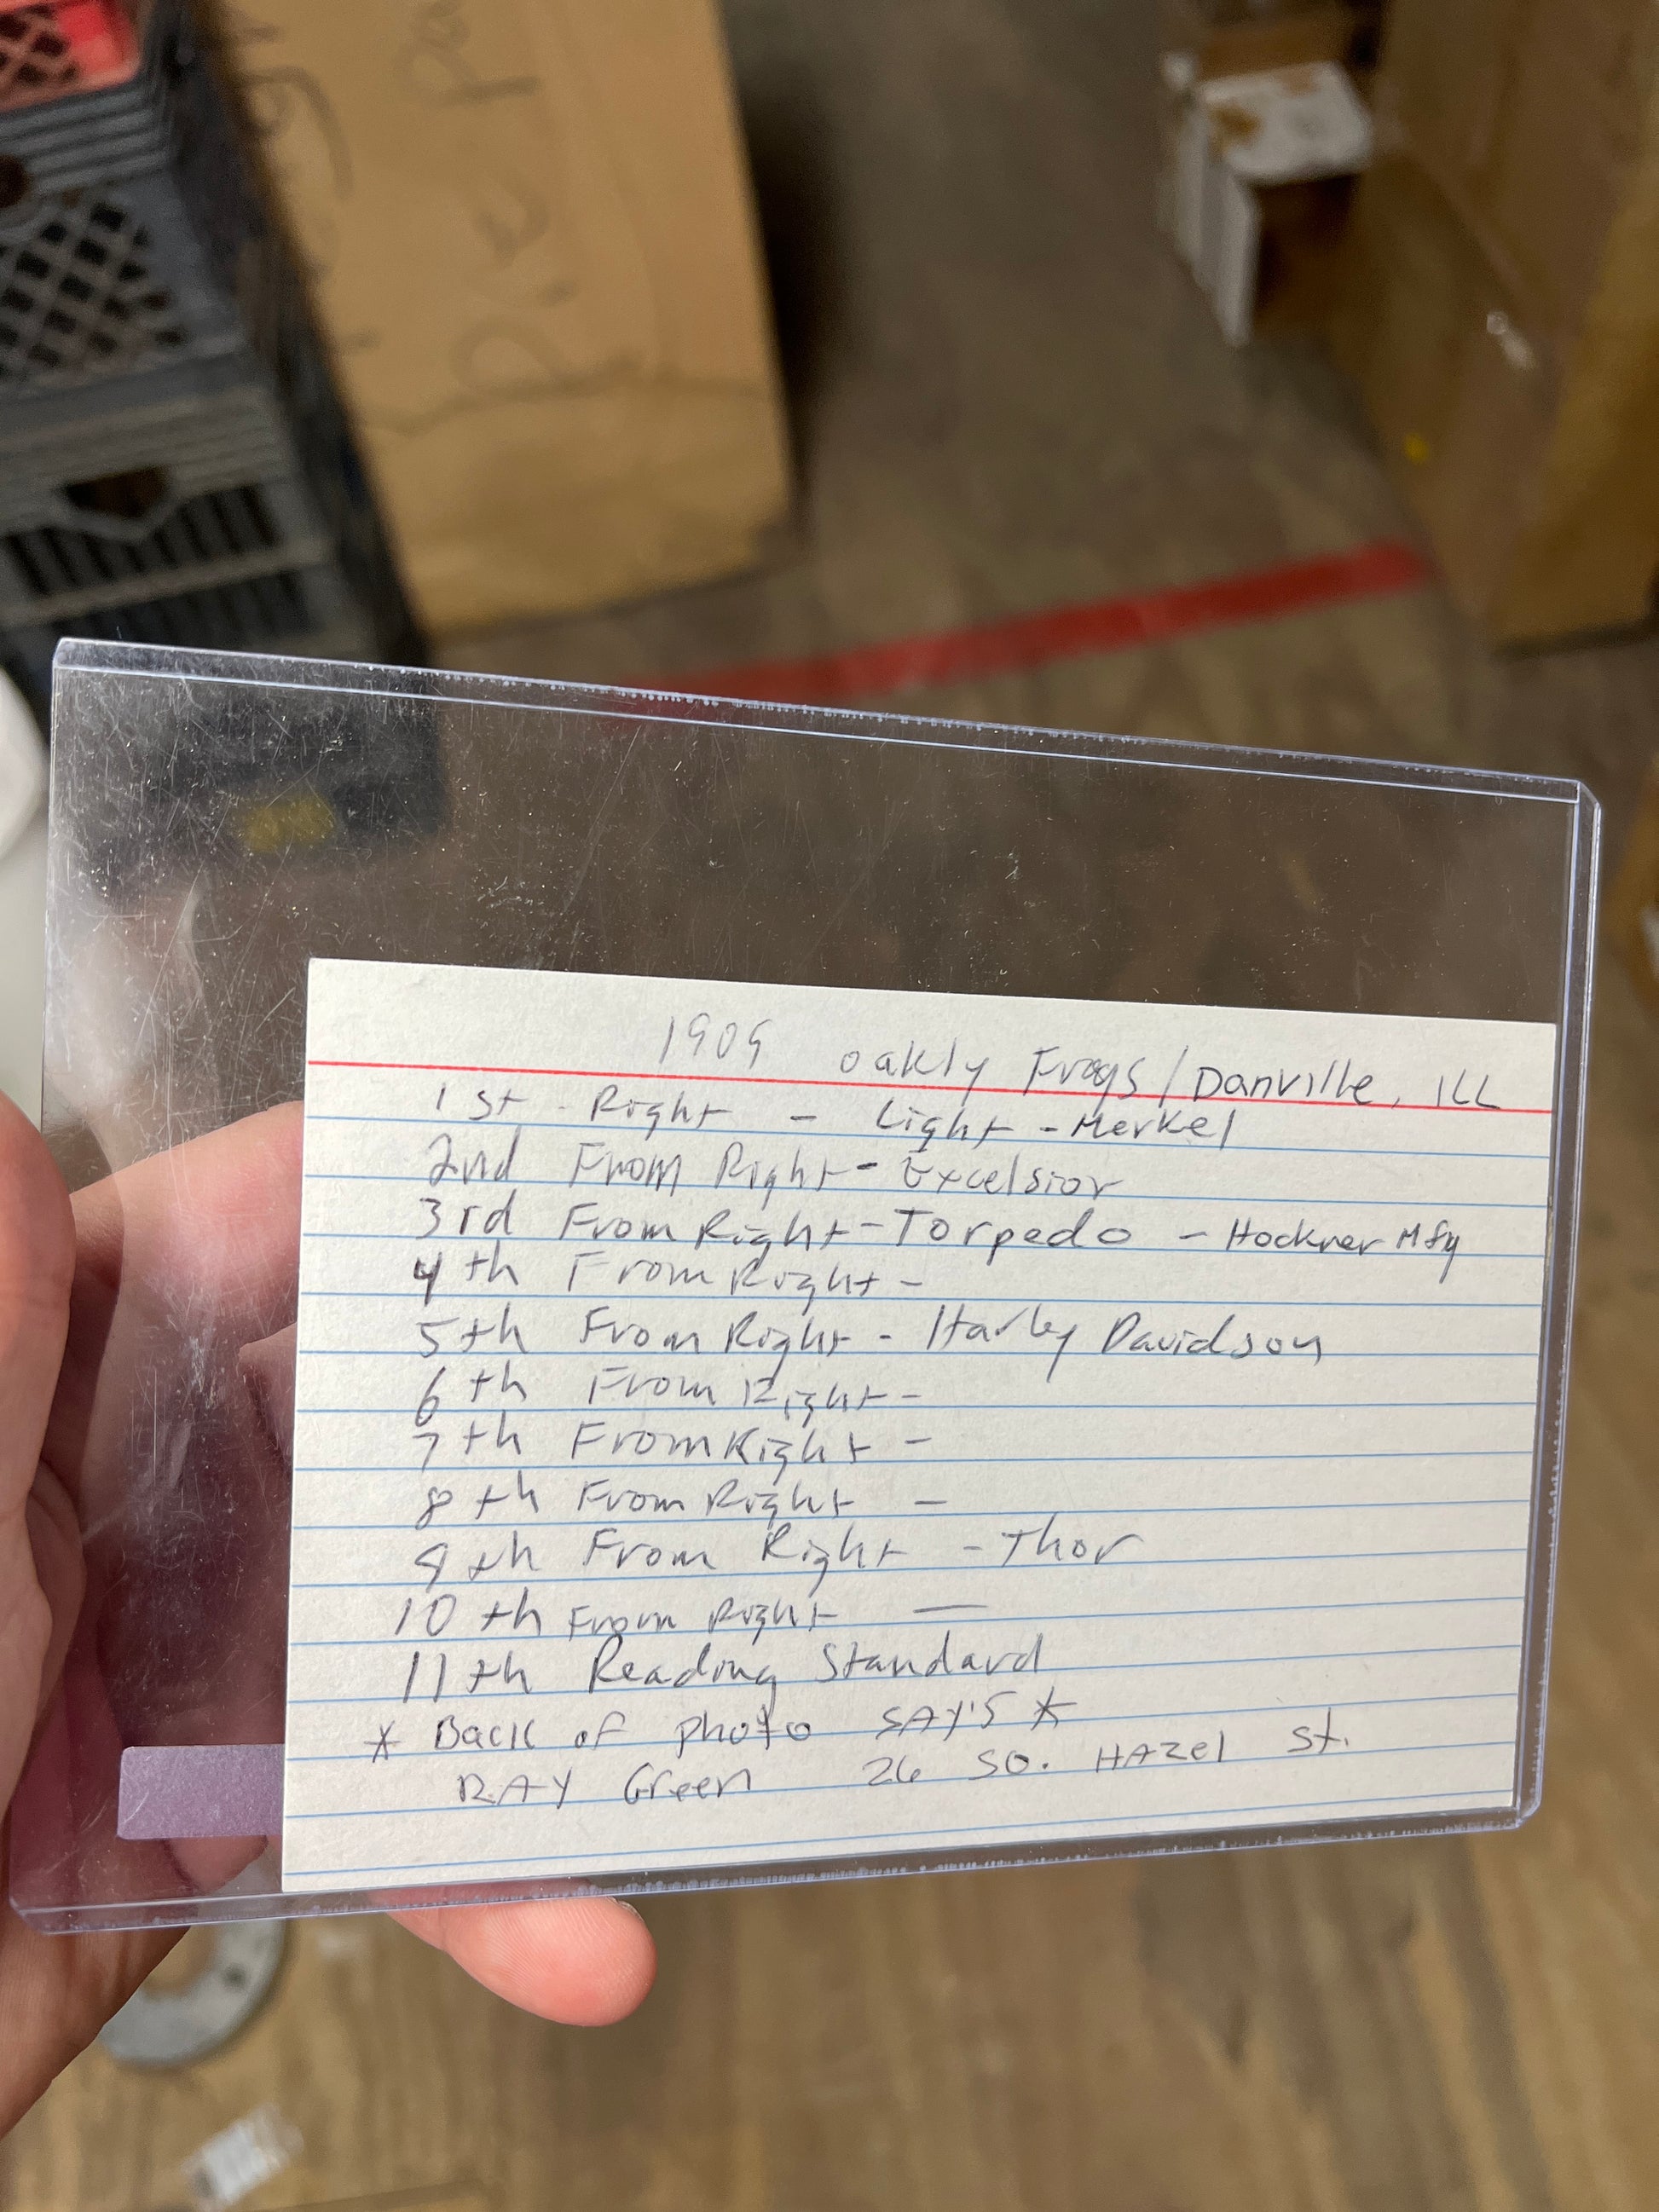 1909 oakly Frogs/Danville, ILL
1st - Right - Light - Merkel
2nd From Right - Excelsior
3rd From Right - Torpedo - Hockner Mfg
4th From Right -
5th From Right - Harley Davidson
6th From Right -
7th From Right -
8th From Right -
9th From Right - Thor
10th From Right —
11th Reading Standard
* Back of photo SAY'S *
RAY Green 26 SO. HAZel St.